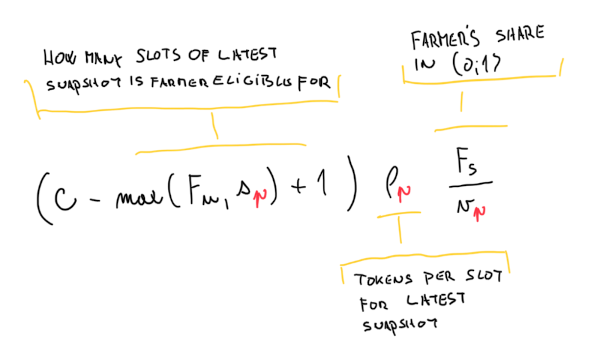 HOW MANY SLOTS OF LATEST
SNAPSHOT IS FARMER ELIGIBLE FOR
FARMER'S SHARE
IN (0;1⟩
(C - max(Fₘ, sₙ) + 1) ρₙ Fₛ/vₙ
TOKENS PER SLOT
FOR LATEST
SNAPSHOT